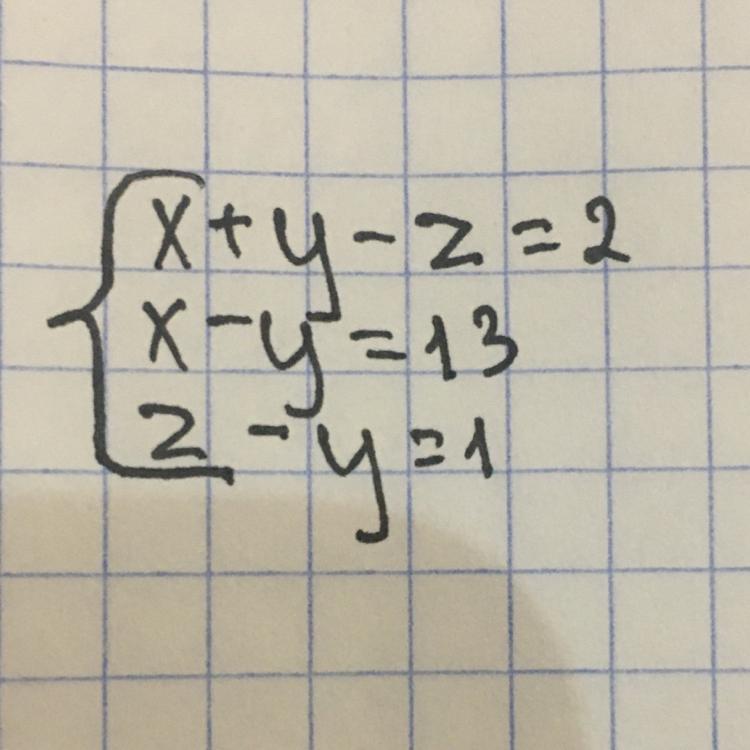 x+y-z=2
x-y=13
z-y=1